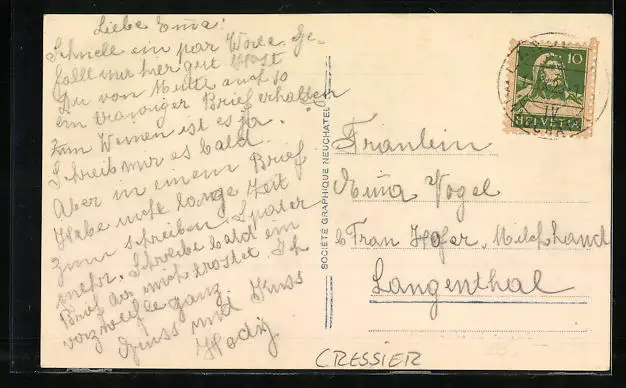 Liebe Erna!
Schnele ein par Worte. Ge-
fallt mir hier gut Hast
Du von Mutti auch so
ein trauriger Brief erhalten
Zum Weinen ist es ja.
Schreib mir es bald.
Aber in einem Brief
Habe nicht lange Zeit
zum schreiben. Später
mehr. Schreibe bald ein
Brief der mich tröstet. Ich
verzweifle ganz.
Gruss und Kuss
Hedy.
SOCIÉTÉ GRAPHIQUE NEUCHATEL
10
HELVETIA
Fräulein
Erna Vogel
b Frau Hofer, Milchhandl
Langenthal
CRESSIER